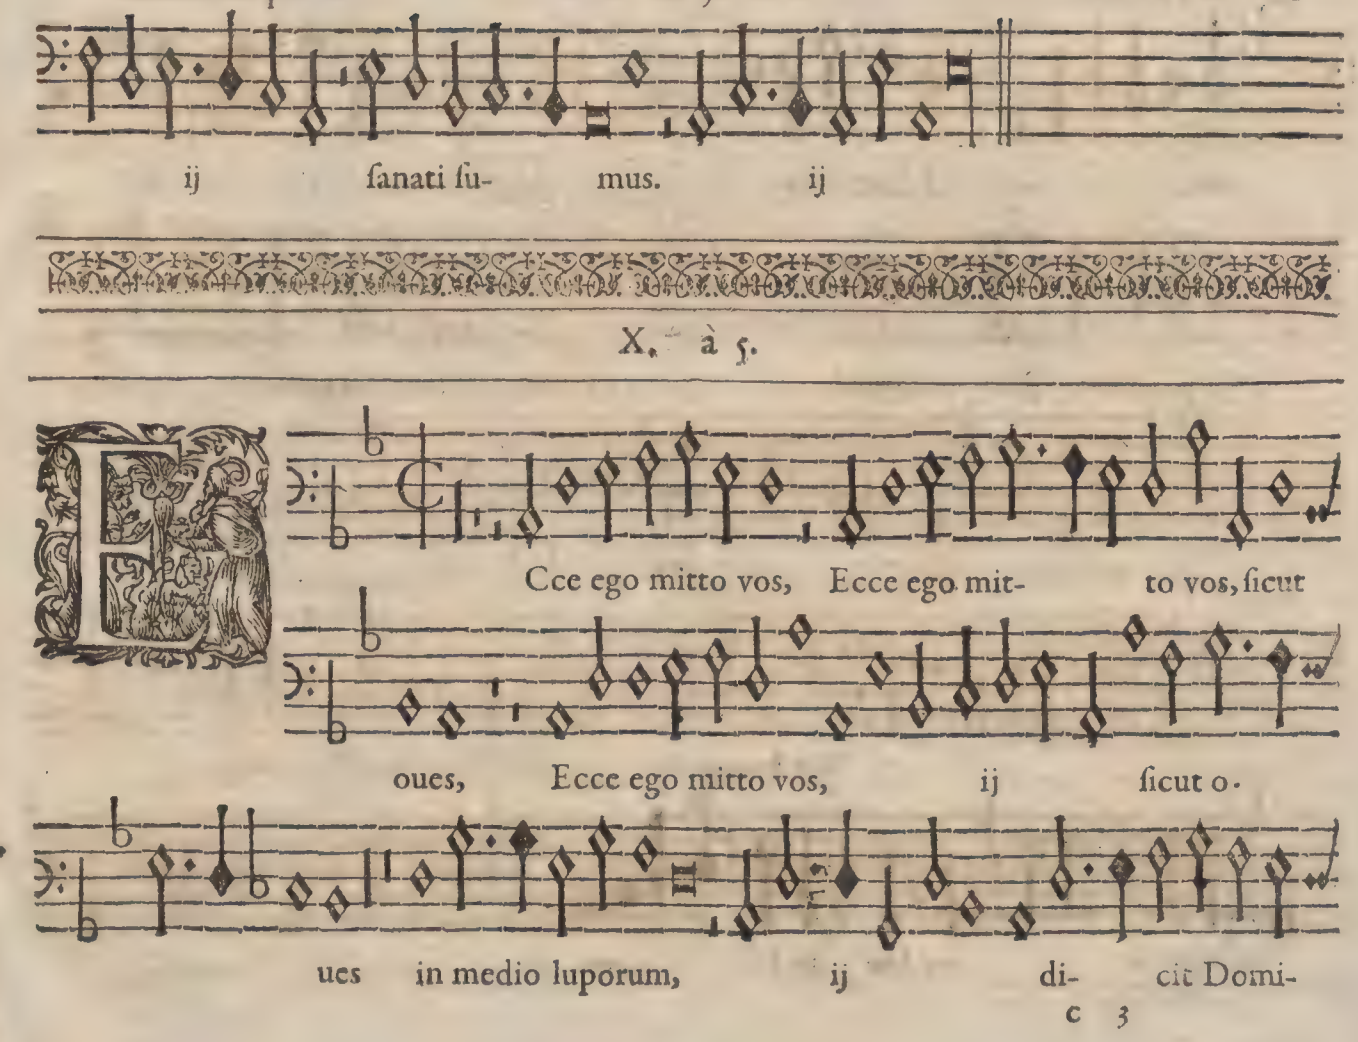 ij ſanati ſu- mus. ij
X. à 5.
ECce ego mitto vos, Ecce ego mit- to vos, ſicut
oues, Ecce ego mitto vos, ij ſicut o-
ues in medio luporum, ij di- cit Domi-
c 3